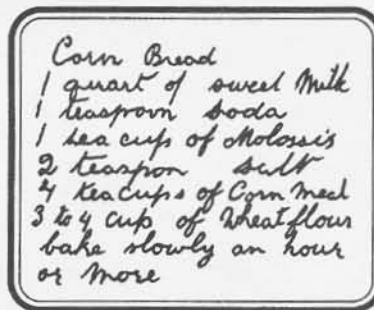 Corn Bread
1 quart of sweet Milk
1 teaspoon soda
1 tea cup of Molossis
2 teaspon salt
4 teacups of Corn Meal
3 to 4 cup of Wheat flour
bake slowly an hour
or more